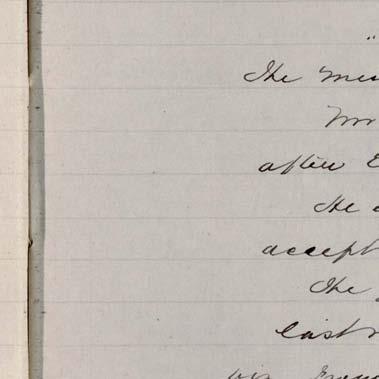 "
The mes
Mr
after E
He a
accept
The
last